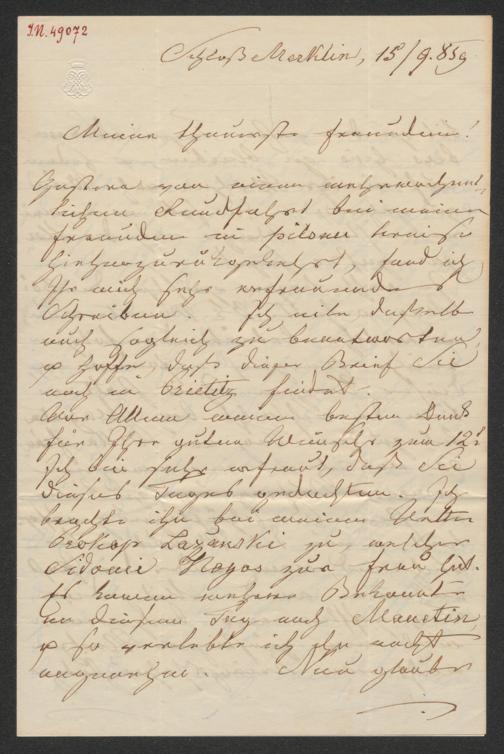 I.N. 49072
Schloß Merklin, 15/9. 859
Meine theuerste Freundin!
Gestern von einer mehrwöchent-
lichen Rundfahrt bei meinen
Freunden im Pilsner Kreise
hieher zurückgekehrt, fand ich
Ihr mich sehr erfreuendes
Schreiben. Ich eile dasselbe
auch sogleich zu beantworten,
& hoffe daß dieser Brief Sie
noch in findet.
Vor Allem meinen besten Dank
für Ihre guten Wünsche zum 12t
Ich bin sehr erfreut, daß Sie
dieses Tages gedachten. Ich
brachte ihn bei meinem Vetter
Prokop Lazanski zu, welcher
Sidonie Hoyos zur Frau hat.
Es kamen mehrere Bekannte
an diesem Tag nach Manetin
& so verlebte ich ihn recht
angenehm. Nun glaube